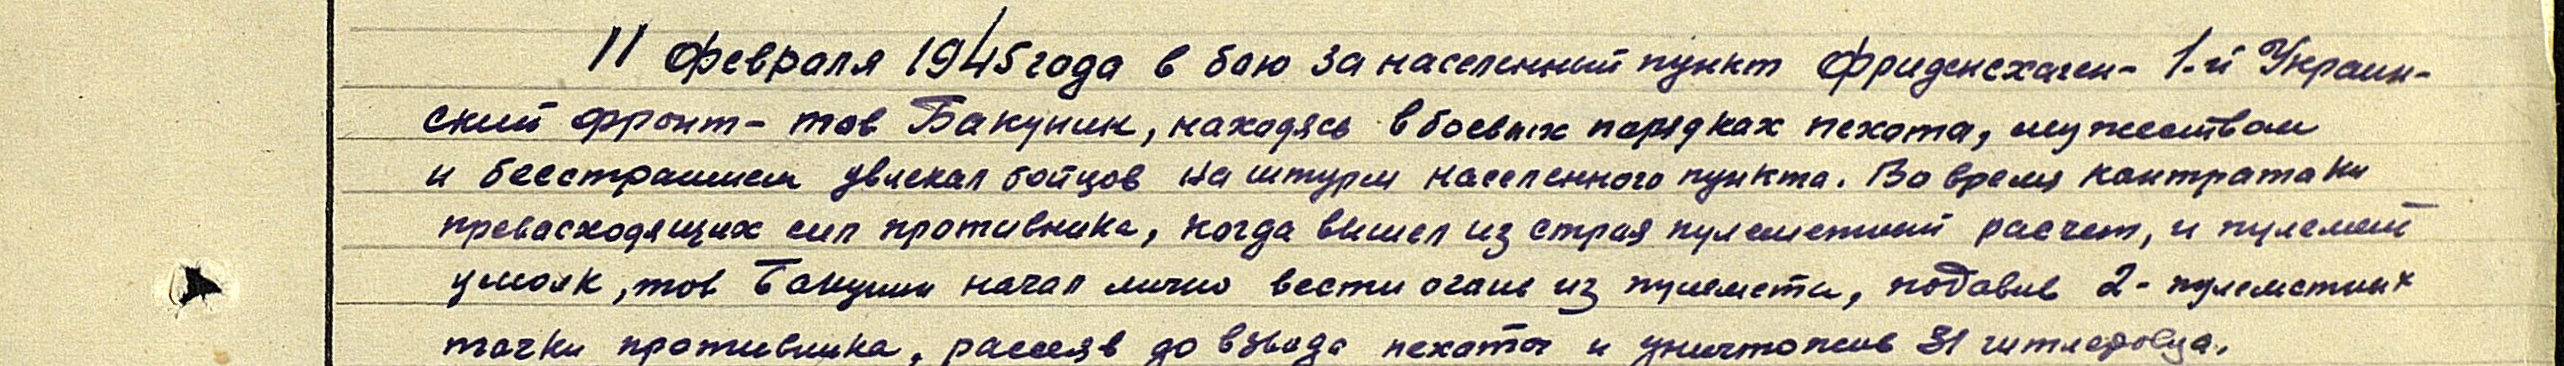 11 февраля 1945 года в бою за населенный пункт Фриденсхаген - 1-й Украин-
ский фронт - тов Бакунин, находясь в боевых порядках пехоты, мужеством
и бесстрашием увлекал бойцов на штурм населенного пункта. Во время контратаки
превосходящих сил противника, когда вышел из строя пулеметный расчет, и пулемет
умолк, тов Бакунин начал лично вести огонь из пулемета, подавив 2 - пулеметных
точки противника, рассеяв до взвода пехоты и уничтожив 31 гитлеровца.